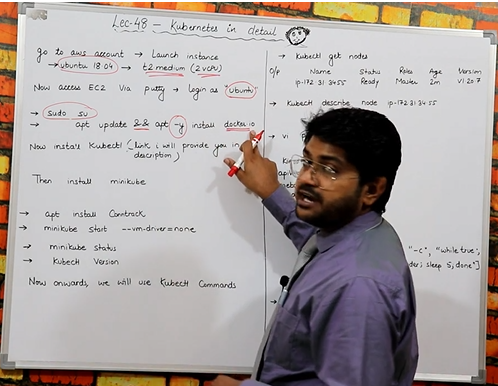 Lec-48 - Kubernetes in detail
go to aws account → Launch instance
→ ubuntu 18.04 → t2.medium (2 vCPU)
Now access EC2 Via putty → login as "ubuntu"
→ sudo su
→ apt update && apt -y install docker.io
Now install Kubectl (link i will provide you in description)
Then install minikube
→ apt install Conntrack
→ minikube Start --vm-driver=none
→ minikube status
→ Kubectl Version
Now onwards, we will use Kubectl Commands
→ Kubectl get nodes
O/p Name Status Roles Age Version
ip-172.31.34.55 Ready Master 2m v1.20.7
→ Kubectl describe node ip-172.31.34.55
→ vi
"-c", "while true;
sleep 5; done"]